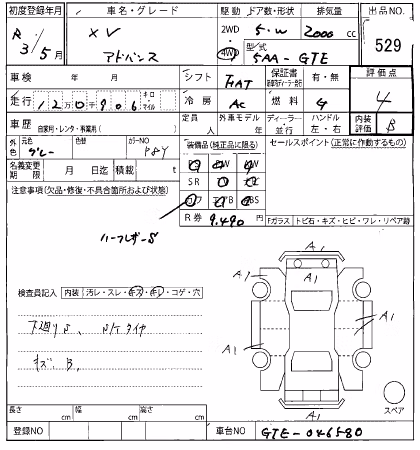 初度登録年月 車名・グレード 駆動 ドア数・形状 排気量 出品NO.
R 3年 5月 XV アドバンス 2WD 4WD 5・W 2000 cc 529
型式 5AA-GTE
車検 年 月 シフト FAT 保証書 有・無 評価点 4
走行 12万0千906 キロ マイル 冷房 AC 燃料 G
車歴 自家用・レンタ・事業用( ) 定員 人 外車モデル 年 ディーラー・並行 ハンドル 左・右 内装評価 B
外色 元色 グレー 色替 カラーNO P8Y 装備品(純正品に限る) セールスポイント(正常に作動するもの)
名義変更期限 月 日迄 積載 t SR
注意事項(欠品・修復・不具合箇所および状態)
R券 9,490円
ハーフレザーS Fガラス トビ石・キズ・ヒビ・ワレ・リペア跡
A1
A1 A1
検査員記入 内装 汚レ・スレ・キズ・キレ・コゲ・穴
下廻りS、
A1 A1
キズ B、
A1 A1
スペア
A1
長さ cm 幅 cm 高さ cm
登録NO 車台NO GTE-046580